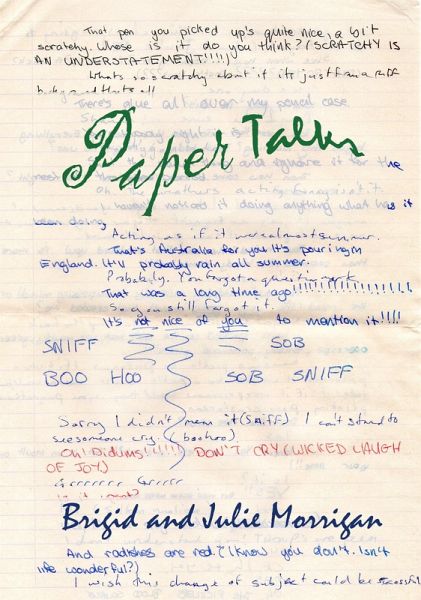 That pen you picked up's quite nice, a bit
scratchy. Whose is it do you think? (SCRATCHY IS
AN UNDERSTATEMENT!!!!)
What's so scratchy about it its just from a ruff
background that's all
There's glue all over my pencil case
Paper Talk
and ignore it for the
acting funny isn't it
noticed it doing anything what has it
been doing
Acting as if it was almost summer.
That's Australia for you It's pouring in
England. It'll probably rain all summer.
Probably. You forgot a question mark
That was a long time ago!!!!!!!!!!!!!!!!!
So you still forgot it
It's not nice of you to mention it!!!!
SNIFF SOB
BOO HOO SOB SNIFF
Sorry I didn't mean it (SNIFF) I can't stand to
see someone cry. (boohoo)
Oh! Didums!!!!!! DON'T CRY (WICKED LAUGH
OF JOY)
Grrrrrrrr Grrrrr
Brigid and Julie Morrigan
And radishes are red? (I know you don't. Isn't
life wonderful?)
I wish this change of subject could be successful